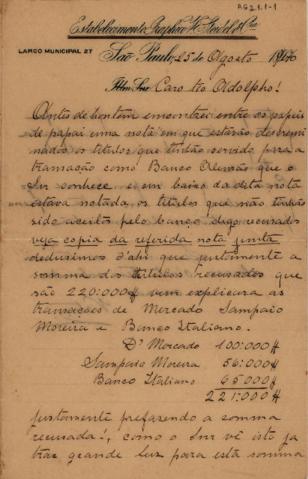 AG21.1-1
Estabelecimento Graphico W. Strobel & Cia
LARGO MUNICIPAL 27
São Paulo, 25 de Agosto
Illm Snr Caro tio Adolpho!
Antes de hontem encontrei entre os papeis
de papai uma nota em que estavão descremi
nados os titulos que tinhão servido para a
transação com o Banco Alemão que o
Snr conhece, e em baixo da dita nota
estava notada, os titulos que não tinhão
sido aceitos pelo banco, digo recusados
veja copia da referida nota junta
deduzimos d'ahi que justamente a
somma dos titulos recusados que
são 220:000$ vem explicar as
transações de Mercado Sampaio
Moreira e Banco Italiano.
D° Mercado 100:000$
Sampaio Moreira 56:000$
Banco Italiano 65000$
221:000$
justamente prefazendo a somma
recusada!, como o Snr vê isto ja
traz grande luz para esta somma